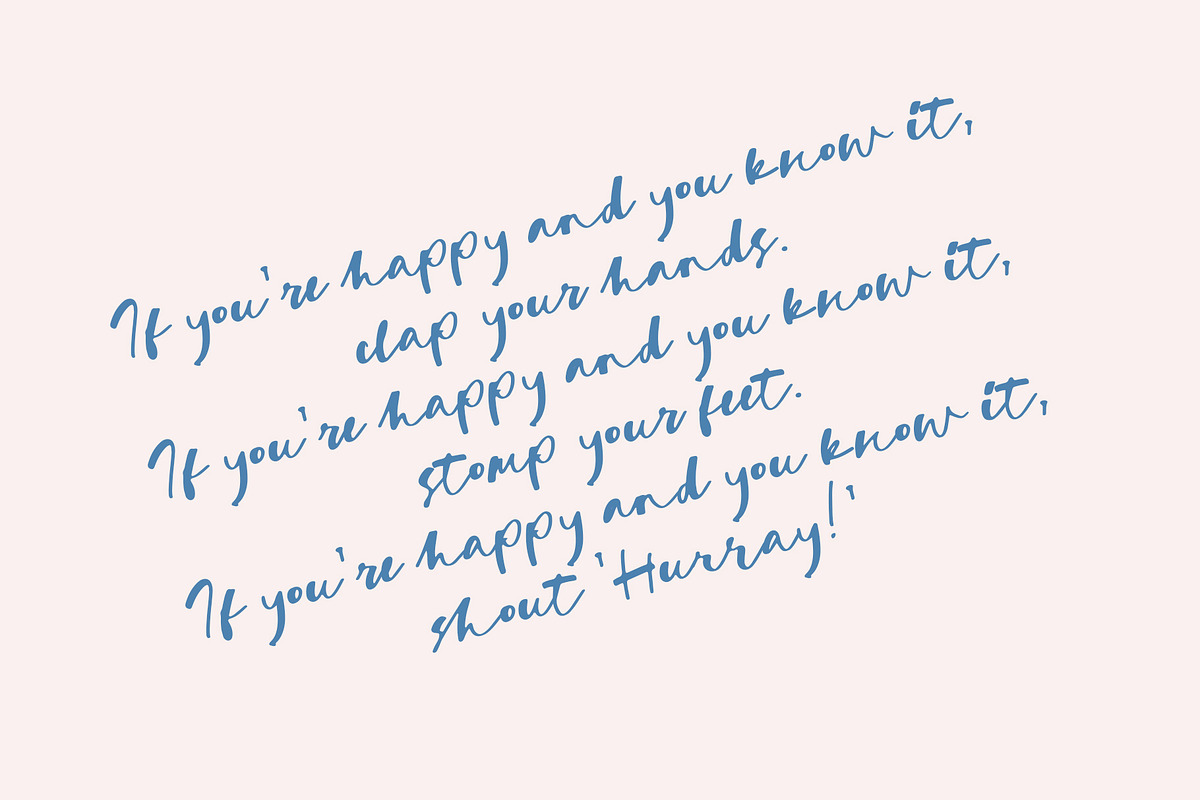 If you're happy and you know it,
clap your hands.
If you're happy and you know it,
stomp your feet.
If you're happy and you know it,
shout 'Hurray!'